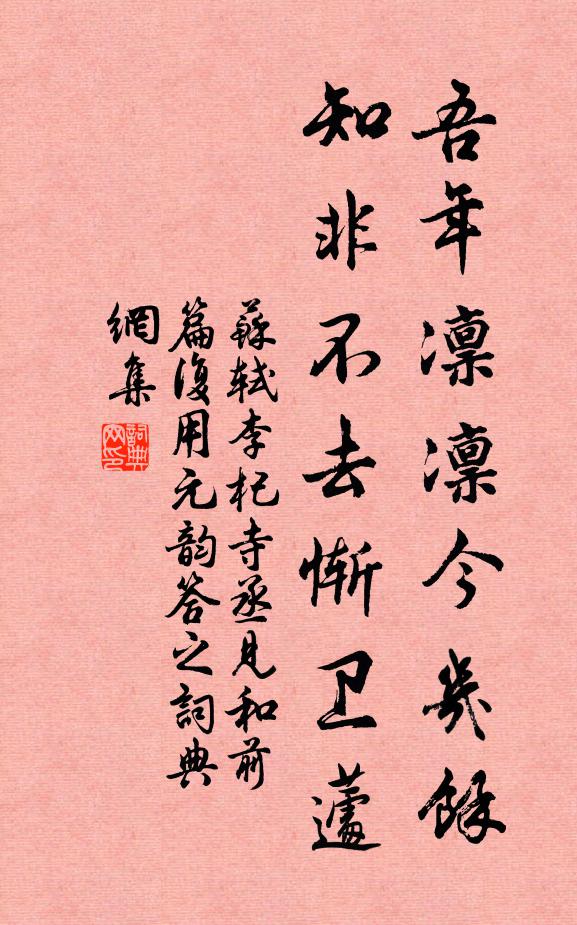 吾年凛凛今几餘
知非不去慚卫蘧
蘇軾李杞寺丞見和前
篇復用元韵答之詞典
網集
詞典网印